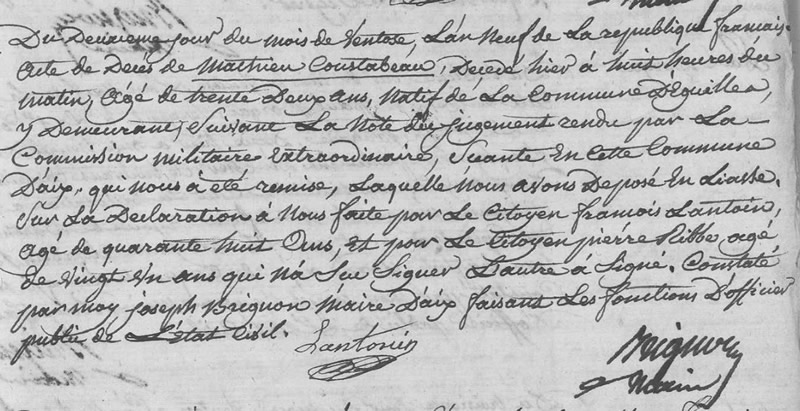 Du Deuxieme jour du mois de Ventose, L'an Neuf de La republique francaise.
Acte de Decés de Mathieu Coustabeau, Decedé hier á huit heures du
matin, agé de trente Deux ans, Natif de La Commune D'Eguilles,
y Demeurant, Suivant La Note du jugement rendu par La
Commission militaire Extraordinaire, Séante En Cette Commune
D'aix, qui nous á été remise, Laquelle Nous avons Deposé En Liasse.
Sur La Declaration á Nous faite par Le Citoyen francois Lantoin,
agé de quarante huit Ans, et par Le Citoyen pierre Ribbe agé
de vingt un ans qui Ná Seu Signer L'autre á Signé. Constaté
par moy joseph Brignon Maire D'aix faisant Les fonctions D'officier
public de L'Etat Civil.
Lantoin Brignon
Maire